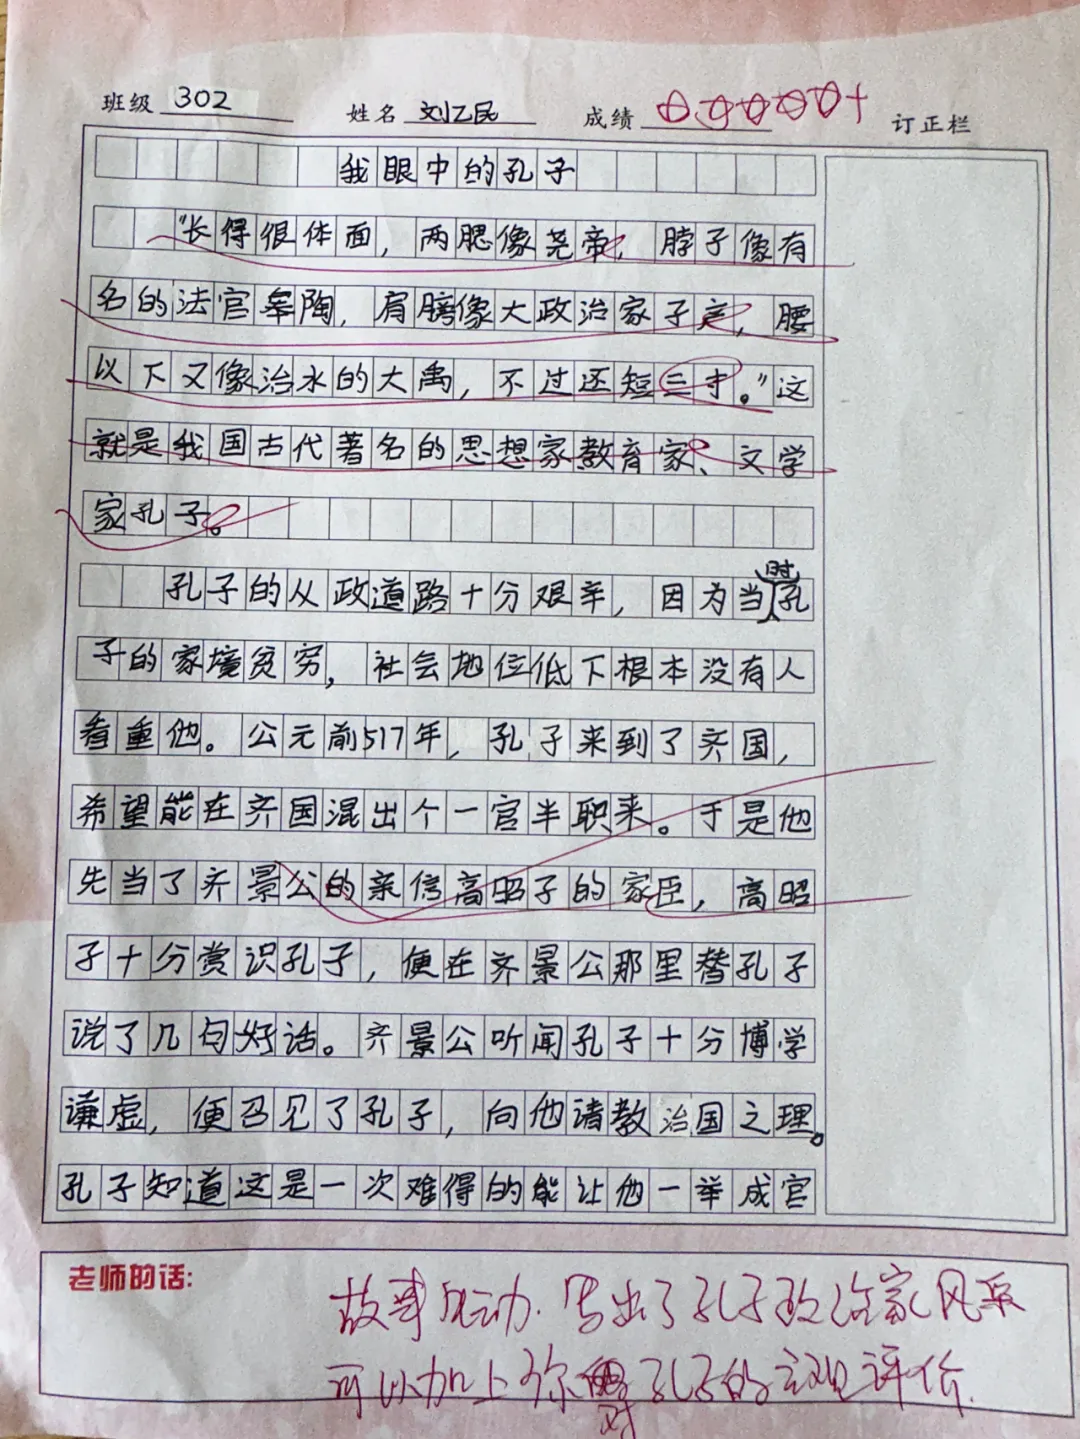 班级 302 姓名 刘乙民 成绩 订正栏
我眼中的孔子
“长得很体面，两腮像尧帝，脖子像有
名的法官皋陶，肩膀像大政治家子产，腰
以下又像治水的大禹，不过还短三寸。”这
就是我国古代著名的思想家教育家、文学
家孔子。
孔子的从政道路十分艰辛，因为当时孔
子的家境贫穷，社会地位低下根本没有人
看重他。公元前517年，孔子来到了齐国，
希望能在齐国混出个一官半职来。于是他
先当了齐景公的亲信高昭子的家臣，高昭
子十分赏识孔子，便在齐景公那里替孔子
说了几句好话。齐景公听闻孔子十分博学
谦虚，便召见了孔子，向他请教治国之理。
孔子知道这是一次难得的能让他一举成官
老师的话：
故事生动.写出了孔子政治家风采
可以加上你对孔子的客观评价.